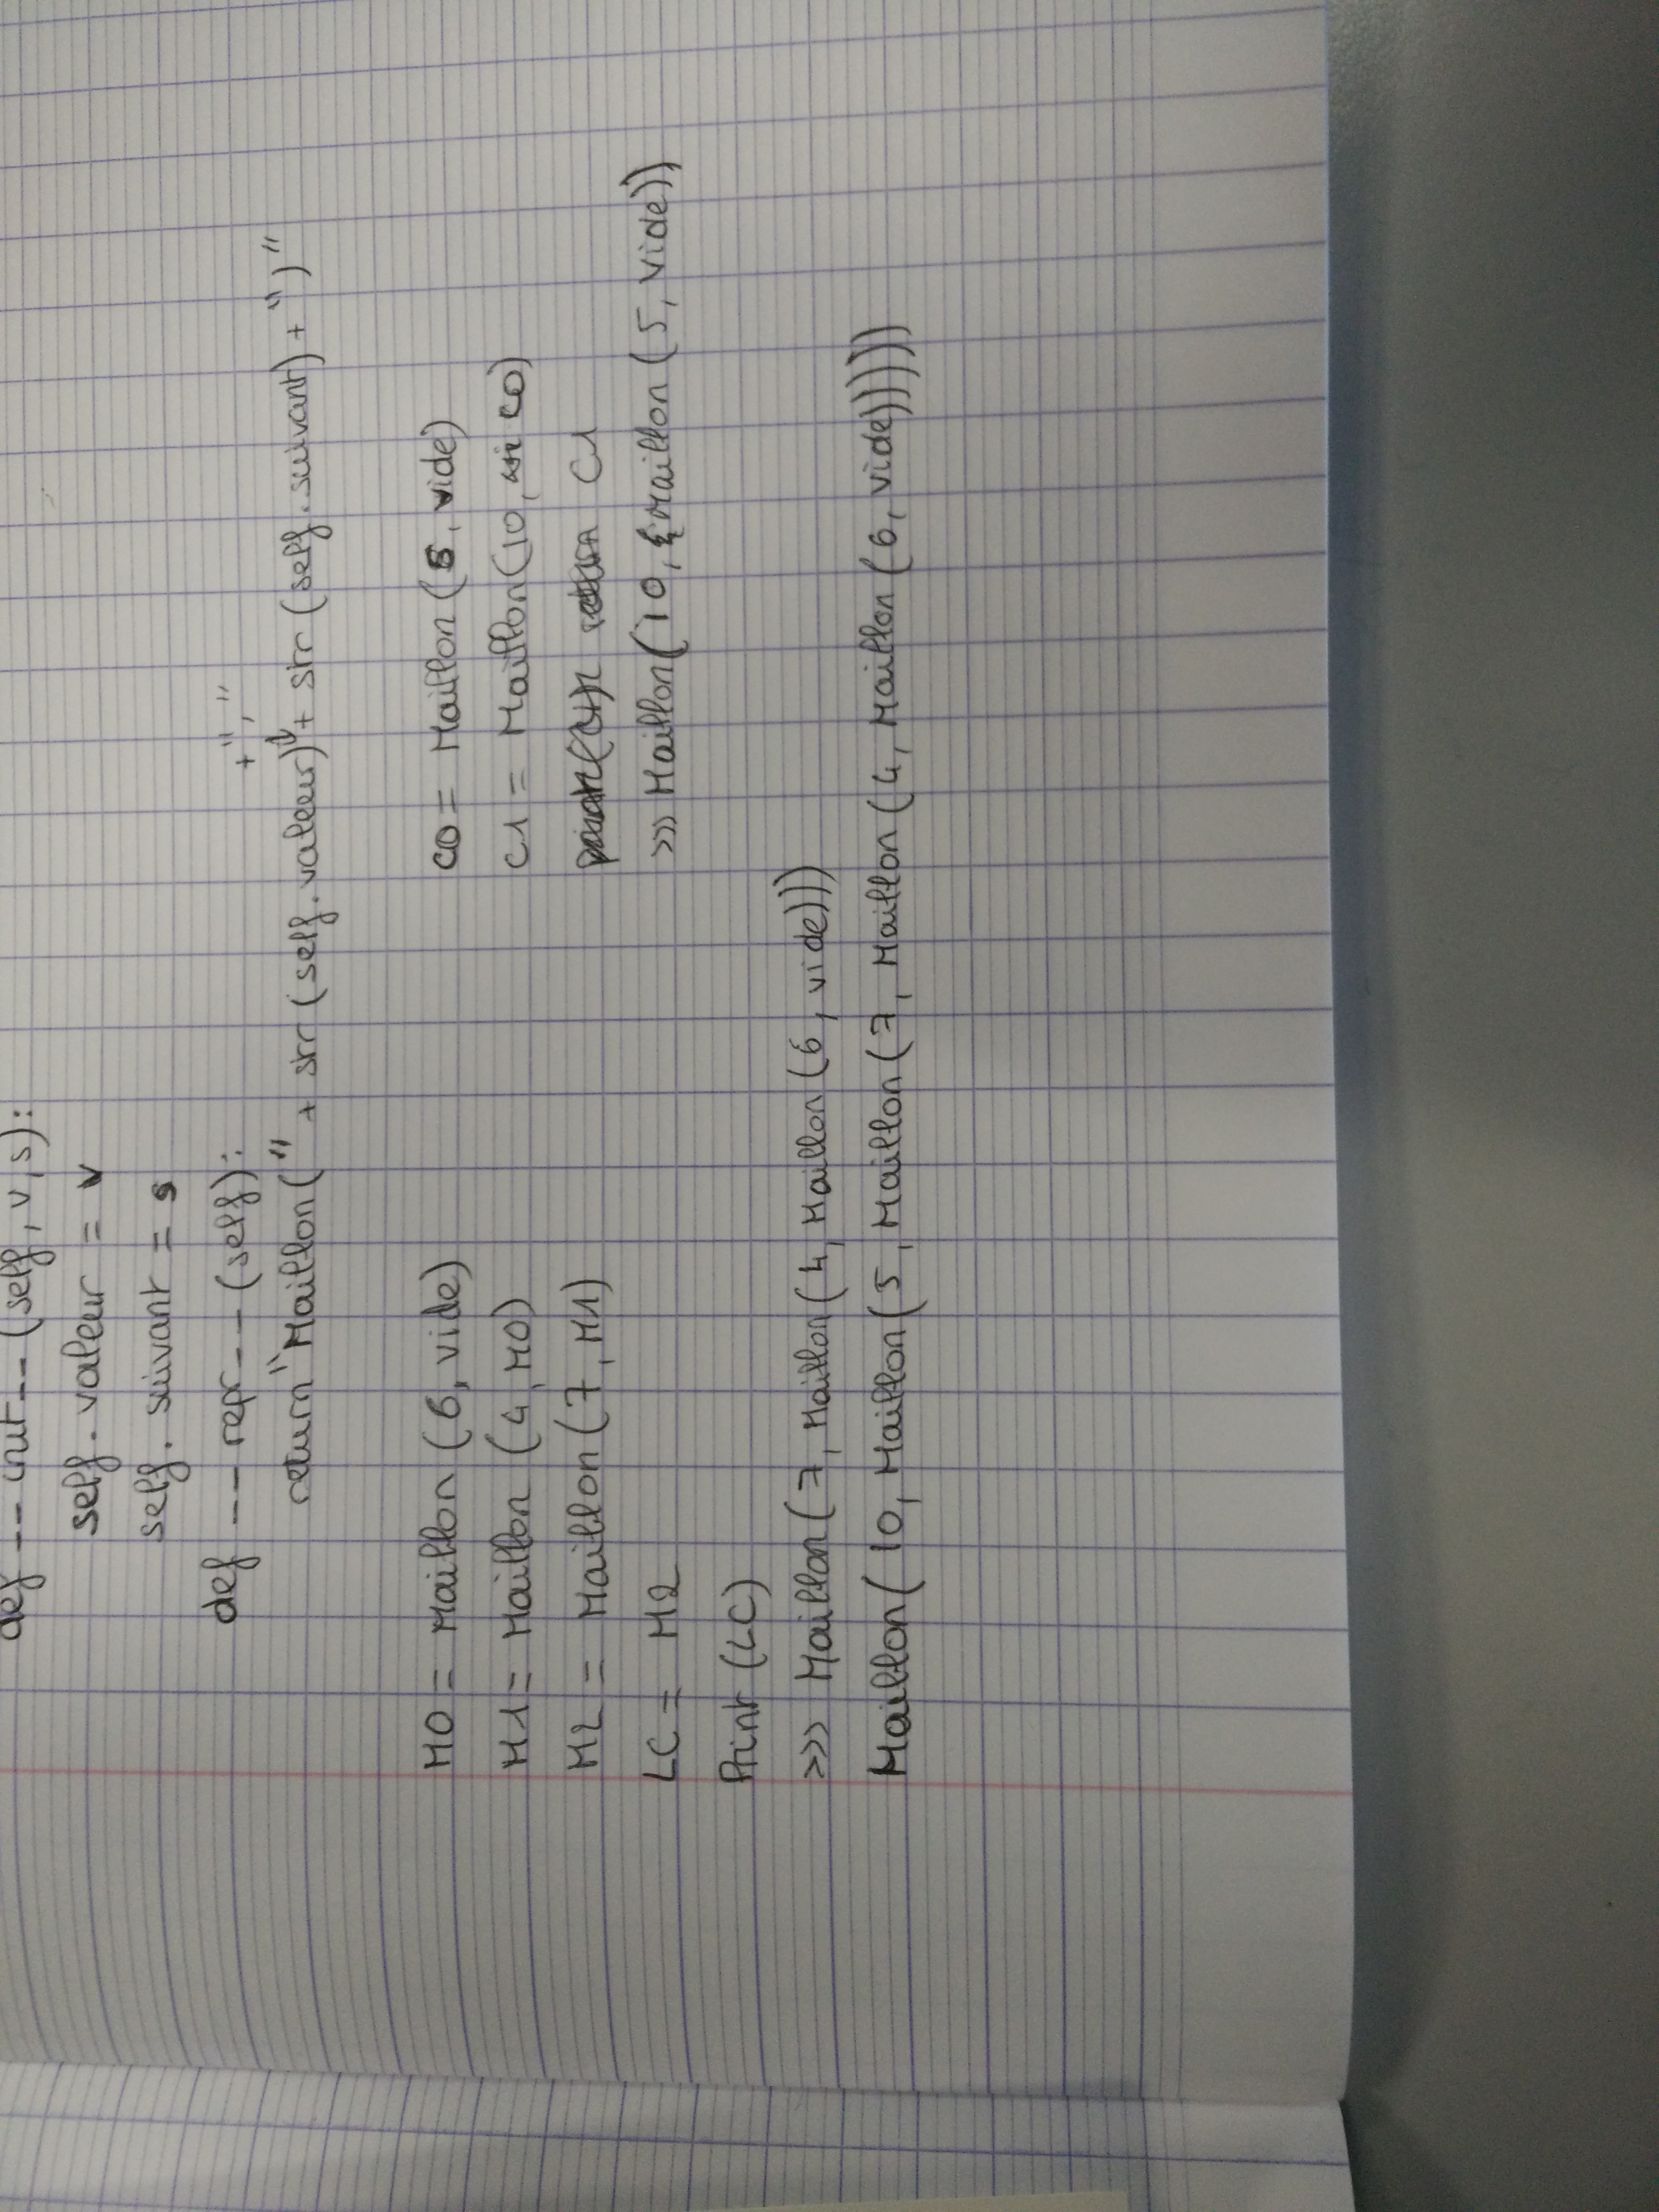 def -- init -- (self, v, s):
self. valeur = v
self. suivant = s
def --- repr -- (self):
+ ","
return "Maillon(" + str (self. valeur) + str (self. suivant) + ")"
M0 = Maillon (6, vide)
M1 = Maillon (4, M0)
M2 = Maillon (7, M1)
LC = M2
Print (LC)
>>> Maillon (7, Maillon (4, Maillon (6, vide)))
Maillon( 10, Maillon (5, Maillon (7, Maillon (4, Maillon (6, vide)))))
C0 = Maillon (5, vide)
C1 = Maillon (10, C0)
C1
>>> Maillon( 10, Maillon (5, vide))